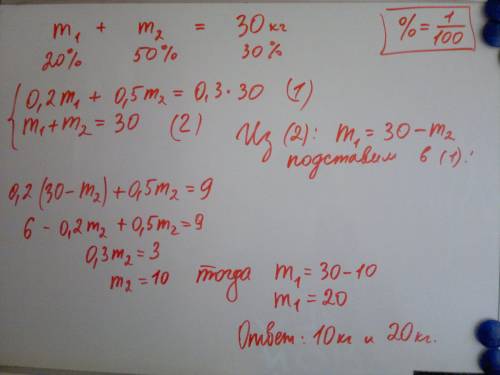 m₁ + m₂ = 30 кг
20% 50% 30%
% = 1/100
0,2m₁ + 0,5m₂ = 0,3·30 (1)
m₁+m₂ = 30 (2)
Из (2): m₁ = 30-m₂
подставим в (1):
0,2(30-m₂)+0,5m₂=9
6 - 0,2m₂ +0,5m₂=9
0,3m₂=3
m₂=10 тогда m₁=30-10
m₁=20
Ответ: 10кг и 20кг.